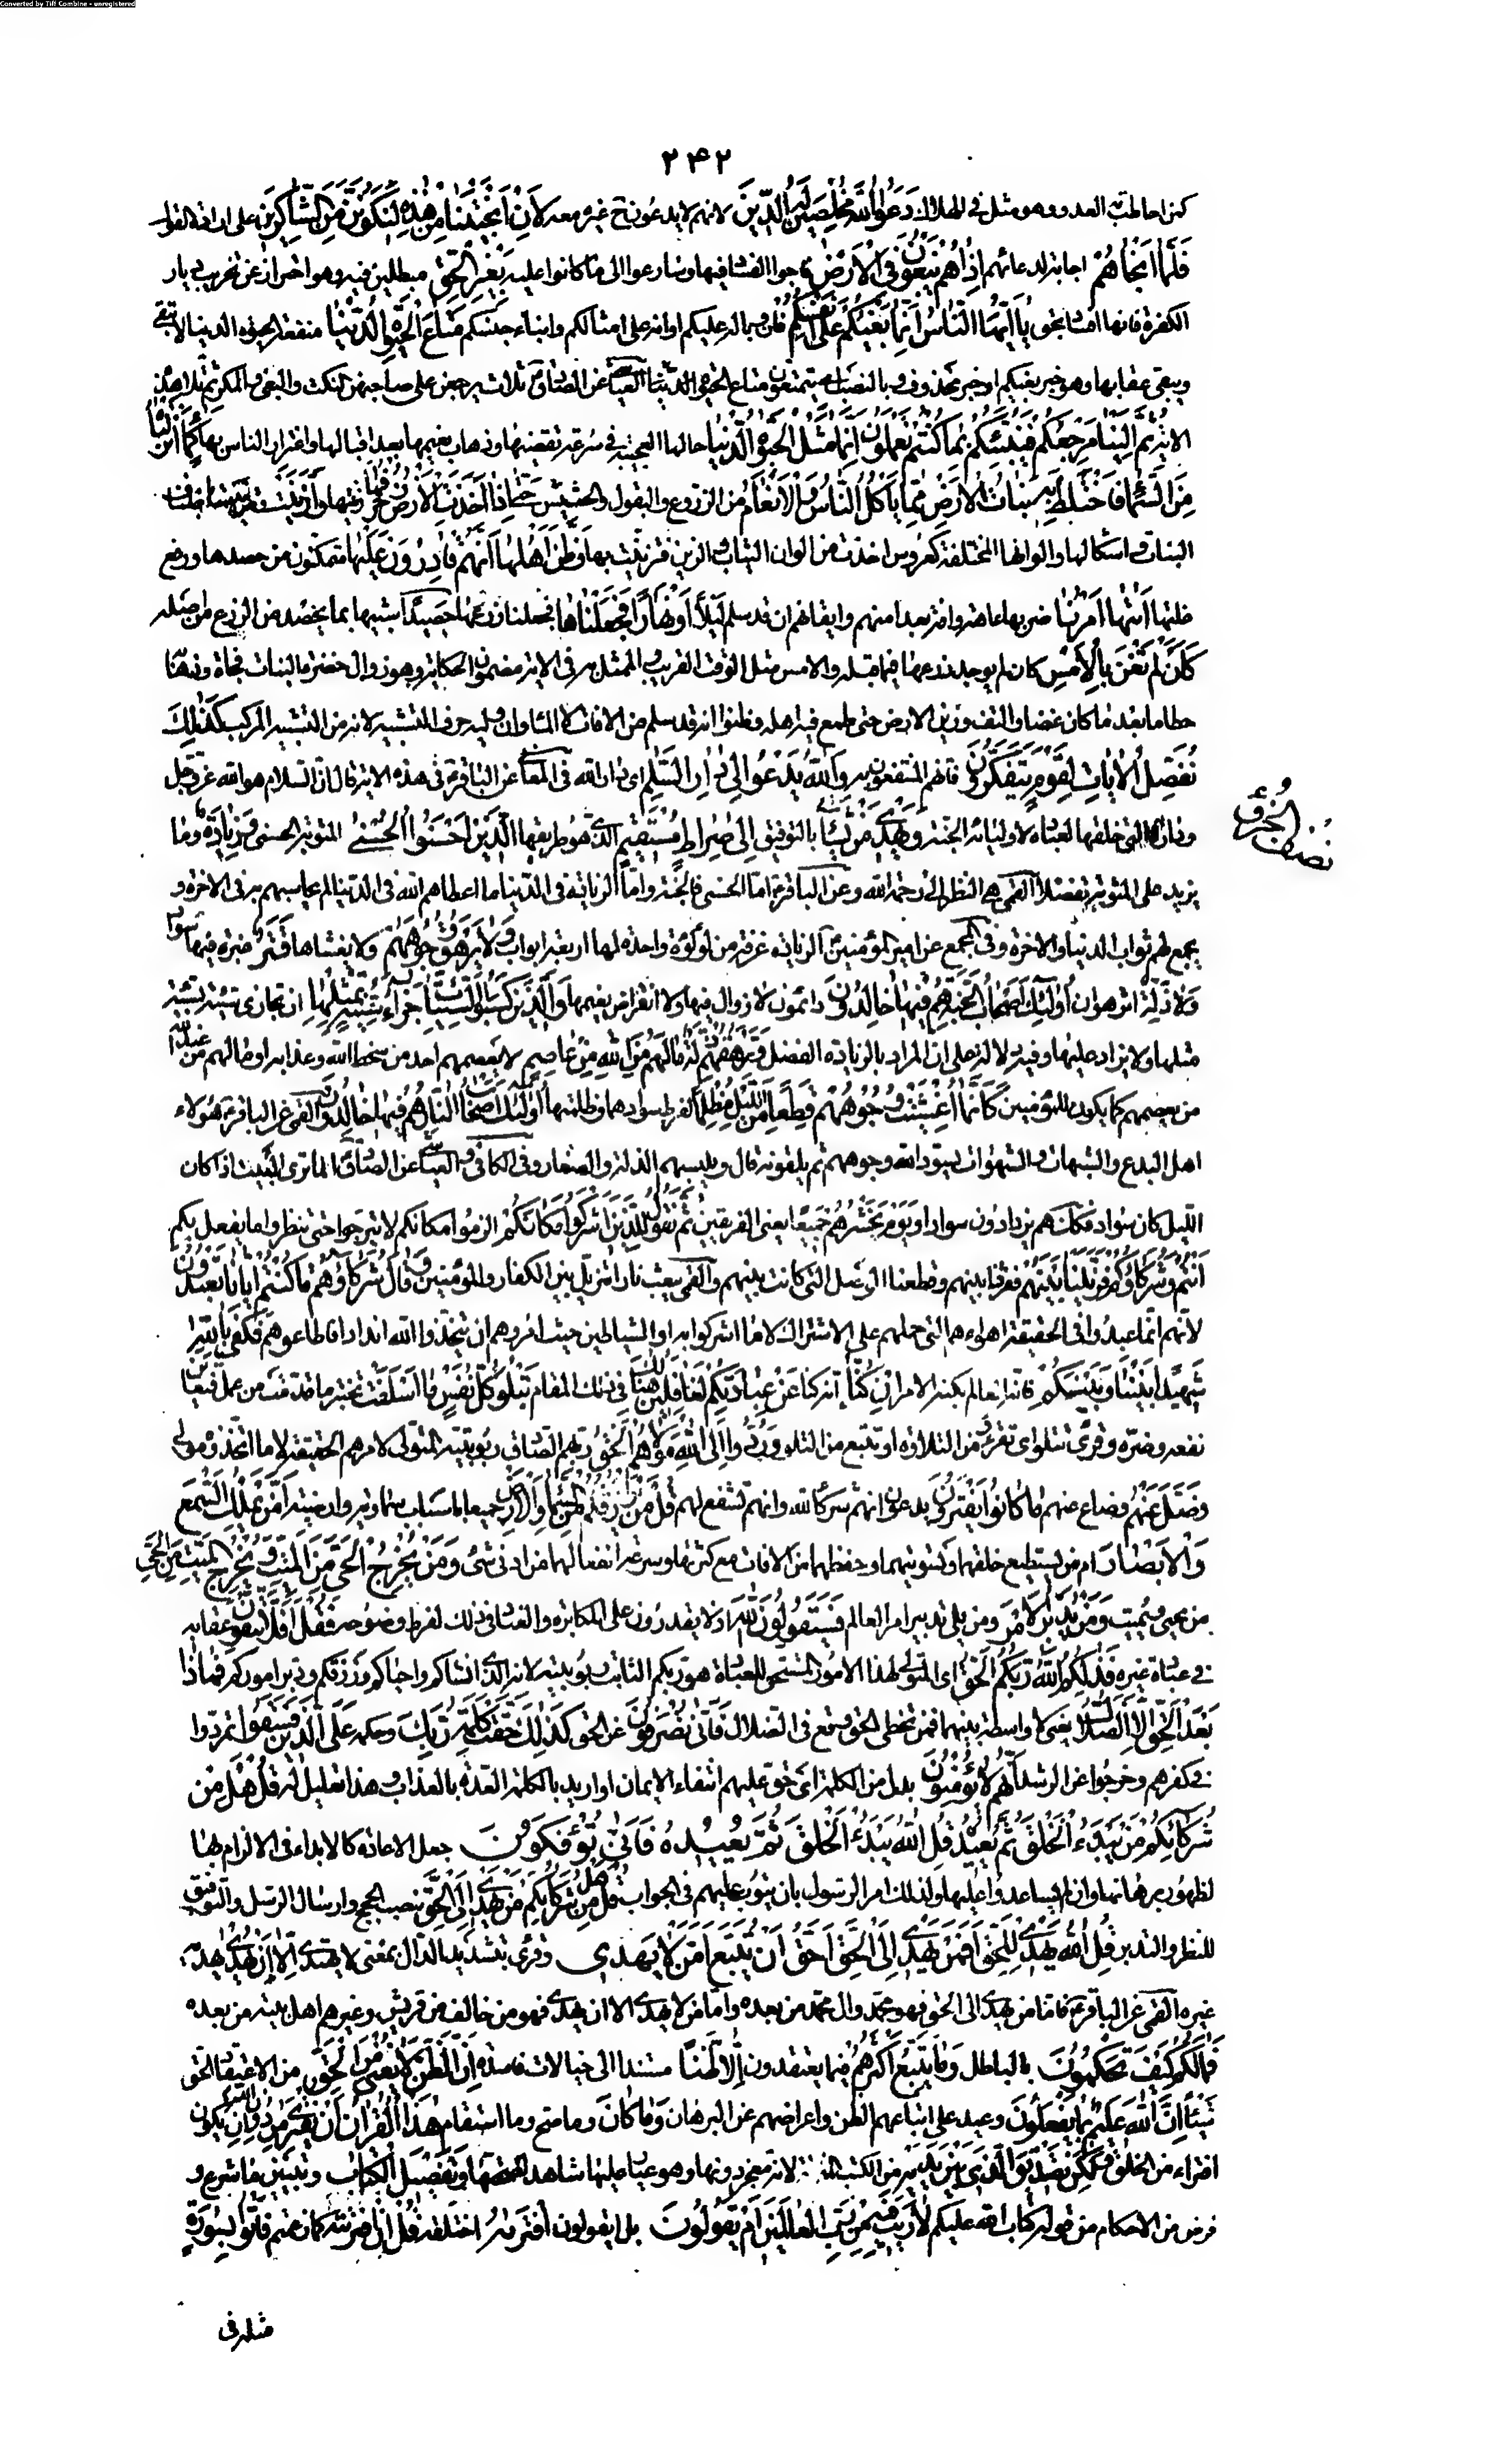 Converted by Tiff Combine - unregistered
۲۴۲
كمن احاط به العدو وهو مثل في الهلاك دَعَوُا اللّهَ مُخْلِصِينَ لَهُ الدِّينَ لانهم لا يدعون ح غيره معه لَئِنْ اَنْجَيْتَنا مِنْ هذِهِ لَنَكُونَنَّ مِنَ الشّاكِرِينَ على ارادة القول
فَلَمّا اَنْجاهُمْ اجابة لدعائهم اِذا هُمْ يَبْغُونَ فِي الْاَرْضِ فاجوا الفساد فيها وسارعوا الى ما كانوا عليه بِغَيْرِ الْحَقِّ مبطلين فيه وهو احتراز عن تخريب ديار
الكفرة فانها افساد بحق يا اَيُّهَا النّاسُ اِنَّما بَغْيُكُمْ عَلى اَنْفُسِكُمْ فان وباله عليكم او انه على امثالكم وابناء جنسكم مَتاعَ الْحَيوةِ الدُّنْيا منفعة الحيوة الدنيا لا تبقى
ويبقى عقابها وهو خبر بغيكم او خبر محذوف وبالنصب يتمتعون متاع الحيوة الدنيا العياشي عن الصادق ثلاث يرجعن على صاحبهن النكث والبغي والمكر ثم تلا هذه
الاية ثُمَّ اِلَيْنا مَرْجِعُكُمْ فَنُنَبِّئُكُمْ بِما كُنْتُمْ تَعْمَلُونَ اِنَّما مَثَلُ الْحَيوةِ الدُّنْيا حالها العجيبة في سرعة تقضيها وذهاب نعيمها بعد اقبالها واغترار الناس بها كَماءٍ اَنْزَلْناهُ
مِنَ السَّماءِ فَاخْتَلَطَ بِهِ نَباتُ الْاَرْضِ مِمّا يَأْكُلُ النّاسُ وَالْاَنْعامُ من الزروع والبقول والحشيش حَتّى اِذا اَخَذَتِ الْاَرْضُ زُخْرُفَها زينتها وَازَّيَّنَتْ وتزينت باصناف
النبات واشكالها والوانها المختلفة كعروس اخذت من الوان الثياب والزين فتزينت بها وَظَنَّ اَهْلُها اَنَّهُمْ قادِرُونَ عَلَيْها متمكنون من حصدها ورفع
غلتها اَتيها اَمْرُنا ضرب بها عاهة وافة بعد امنهم وايقانهم ان قد سلم لَيْلًا اَوْ نَهارًا فَجَعَلْناها فجعلنا زرعها حَصِيدًا شبيها بما يحصد من الزرع من اصله
كَأَنْ لَمْ تَغْنَ بِالْاَمْسِ كان لم يوجد زرعها فيما قبله والامس مثل الوقت القريب والممثل به في الاية مضمون الحكاية وهو زوال خضرة النبات فجأة وذهابه
حطاما بعد ما كان غضا والتف وزين الارض حتى طمع فيه اهله وظنوا انه قد سلم من الافات لا الماء وان وليه حرف التشبيه لانه من التشبيه المركب كَذلِكَ
نُفَصِّلُ الْاياتِ لِقَوْمٍ يَتَفَكَّرُونَ فانهم المنتفعون به وَاللّهُ يَدْعُوا اِلى دارِ السَّلامِ اي دار الله في المعاني عن الباقر في هذه الاية قال ان السلام هو الله عز وجل
وداره التي خلقها لعباده ولاوليائه الجنة وَيَهْدِي مَنْ يَشاءُ بالتوفيق اِلى صِراطٍ مُسْتَقِيمٍ الذي هو طريقها لِلَّذِينَ اَحْسَنُوا الْحُسْنى المثوبة الحسنى وَزِيادَةٌ وما
نصف الجزؤ
يزيد على المثوبة تفضلا القمي هي النظر الى رحمة الله وعن الباقر اما الحسنى فالجنة واما الزيادة في الدنيا ما اعطاهم الله في الدنيا لم يحاسبهم به في الاخرة و
يجمع لهم ثواب الدنيا والاخرة وفي المجمع عن امير المؤمنين الزيادة غرفة من لؤلؤة واحدة لها اربعة ابواب وَلا يَرْهَقُ وُجُوهَهُمْ ولا يغشاها قَتَرٌ غبرة فيها سواد
وَلا ذِلَّةٌ اثر هوان اُولئِكَ اَصْحابُ الْجَنَّةِ هُمْ فِيها خالِدُونَ دائمون لا زوال فيها ولا انقراض لنعيمها وَالَّذِينَ كَسَبُوا السَّيِّئاتِ جَزاءُ سَيِّئَةٍ بِمِثْلِها ان تجازى سيئة بسيئة
مثلها ولا يزاد عليها وفيه دلالة على ان المراد بالزيادة الفضل وَتَرْهَقُهُمْ ذِلَّةٌ ما لَهُمْ مِنَ اللّهِ مِنْ عاصِمٍ لا يعصمهم احد من سخط الله وعذابه او ما لهم من عند الله
من يعصمهم كما يكون للمؤمنين كَاَنَّما اُغْشِيَتْ وُجُوهُهُمْ قِطَعًا مِنَ اللَّيْلِ مُظْلِمًا لفرط سوادها وظلمتها اُولئِكَ اَصْحابُ النّارِ هُمْ فِيها خالِدُونَ القمي عن الباقر هؤلاء
اهل البدع والشبهات والشهوات يسود الله وجوههم ثم يلقونه قال ويلبسهم الذلة والصغار وفي الكافي والعياشي عن الصادق اما ترى البيت اذا كان
الليل كان سواد فكذلك هم يزدادون سوادا وَيَوْمَ نَحْشُرُهُمْ جَمِيعًا يعني الفريقين ثُمَّ نَقُولُ لِلَّذِينَ اَشْرَكُوا مَكانَكُمْ الزموا مكانكم لا تبرحوا حتى تنظروا ما يفعل بكم
اَنْتُمْ وَشُرَكاؤُكُمْ فَزَيَّلْنا بَيْنَهُمْ ففرقنا بينهم وقطعنا الوصل التي كانت بينهم والقمي يبعث نارا تزيل بين الكفار والمؤمنين وَقالَ شُرَكاؤُهُمْ ما كُنْتُمْ اِيّانا تَعْبُدُونَ
لانهم انما عبدوا في الحقيقة اهواءهم التي حملهم على الاشراك لا ما اشركوا به او الشياطين حيث امروهم ان يتخذوا لله اندادا فاطاعوهم فَكَفى بِاللّهِ
شَهِيدًا بَيْنَنا وَبَيْنَكُمْ فانه العالم بكنه الامر اِنْ كُنّا انه كنا عَنْ عِبادَتِكُمْ لَغافِلِينَ هُنالِكَ في ذلك المقام تَبْلُوا كُلُّ نَفْسٍ ما اَسْلَفَتْ تختبر ما قدمت من عمل فتعاين
نفعه وضره وقرئ تتلو اي تقرأ من التلاوة او تتبع من التلو وَرُدُّوا اِلَى اللّهِ مَوْلاهُمُ الْحَقِّ ربهم الصادق ربوبيته المتولى لامرهم الحقيقة لا ما اتخذوه مولى
وَضَلَّ عَنْهُمْ وضاع عنهم ما كانُوا يَفْتَرُونَ يدعون انهم شركاء الله وانهم تشفع لهم قُلْ مَنْ يَرْزُقُكُمْ مِنَ السَّماءِ وَالْاَرْضِ جميعا باسباب سماوية وارضية اَمَّنْ يَمْلِكُ السَّمْعَ
وَالْاَبْصارَ ام من يستطيع خلقهما وتسويتهما وحفظهما من الافات مع كثرتها وسرعة انفعالهما من ادنى شئ وَمَنْ يُخْرِجُ الْحَيَّ مِنَ الْمَيِّتِ وَيُخْرِجُ الْمَيِّتَ مِنَ الْحَيِّ
من يحيي ويميت وَمَنْ يُدَبِّرُ الْاَمْرَ ومن يلي تدبير امر العالم فَسَيَقُولُونَ اللّهُ اذ لا يقدرون على المكابرة والعناد في ذلك لفرط وضوحه فَقُلْ اَفَلا تَتَّقُونَ عقابه
في عبادة غيره فَذلِكُمُ اللّهُ رَبُّكُمُ الْحَقُّ اي المتولي لهذا الامور المستحق للعبادة هو ربكم الثابت ربوبيته لانه الذي انشاكم واحياكم ورزقكم ودبر اموركم فَماذا
بَعْدَ الْحَقِّ اِلَّا الضَّلالُ يعني لا واسطة بينهما فمن تخطى الحق وقع في الضلال فَاَنّى تُصْرَفُونَ عن الحق كَذلِكَ حَقَّتْ كَلِمَةُ رَبِّكَ وحكمه عَلَى الَّذِينَ فَسَقُوا تمردوا
في كفرهم وخرجوا عن الرشد اَنَّهُمْ لا يُؤْمِنُونَ بدل من الكلمة اي حق عليهم انتفاء الايمان او اريد بالكلمة العدة بالعذاب وهذا تعليل له قُلْ هَلْ مِنْ
شُرَكائِكُمْ مَنْ يَبْدَءُ الْخَلْقَ ثُمَّ يُعِيدُهُ قُلِ اللّهُ يَبْدَءُ الْخَلْقَ ثُمَّ يُعِيدُهُ فَاَنّى تُؤْفَكُونَ جعل الاعادة كالابداء في الالزام بها
لظهور برهانها وان لم يساعدوا عليها ولذلك امر الرسول بان ينوب عليهم في الجواب قُلْ هَلْ مِنْ شُرَكائِكُمْ مَنْ يَهْدِي اِلَى الْحَقِّ بنصب الحجج وارسال الرسل والتوفيق
للنظر والتدبر قُلِ اللّهُ يَهْدِي لِلْحَقِّ اَفَمَنْ يَهْدِي اِلَى الْحَقِّ اَحَقُّ اَنْ يُتَّبَعَ اَمَّنْ لا يَهِدِّي وقرئ بتشديد الدال بمعنى لا يهتدي اِلّا اَنْ يُهْدى يهديه
غيره القمي عن الباقر فاما من يهدي الى الحق فهو محمد وال محمد من بعده واما من لا يهدي الا ان يهدى فهو من خالف من قريش وغيرهم اهل بيته من بعده
فَما لَكُمْ كَيْفَ تَحْكُمُونَ بالباطل وَما يَتَّبِعُ اَكْثَرُهُمْ فيما يعتقدون اِلّا ظَنًّا مستندا الى خيالات فاسدة اِنَّ الظَّنَّ لا يُغْنِي مِنَ الْحَقِّ من الاعتقاد الحق
شَيْئًا اِنَّ اللّهَ عَلِيمٌ بِما يَفْعَلُونَ وعيد على اتباعهم الظن واعراضهم عن البرهان وَما كانَ وما صح وما استقام هذَا الْقُرْانُ اَنْ يُفْتَرى مِنْ دُونِ اللّهِ ان يكون
افتراء من الخلق وَلكِنْ تَصْدِيقَ الَّذِي بَيْنَ يَدَيْهِ من الكتب لانه معجز دونها وهو عيار عليها شاهد لصحتها وَتَفْصِيلَ الْكِتابِ وتبيين ما شرع و
فرض من الاحكام من قوله كتاب الله عليكم لا رَيْبَ فِيهِ مِنْ رَبِّ الْعالَمِينَ اَمْ يَقُولُونَ بل ايقولون افْتَراهُ اختلقه قُلْ ان افتريته كما زعمتم فَأْتُوا بِسُورَةٍ
مثله في